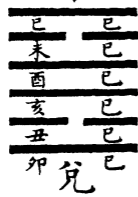 巳 巳
未 巳
酉 巳
亥 巳
丑 巳
卯 巳
兌